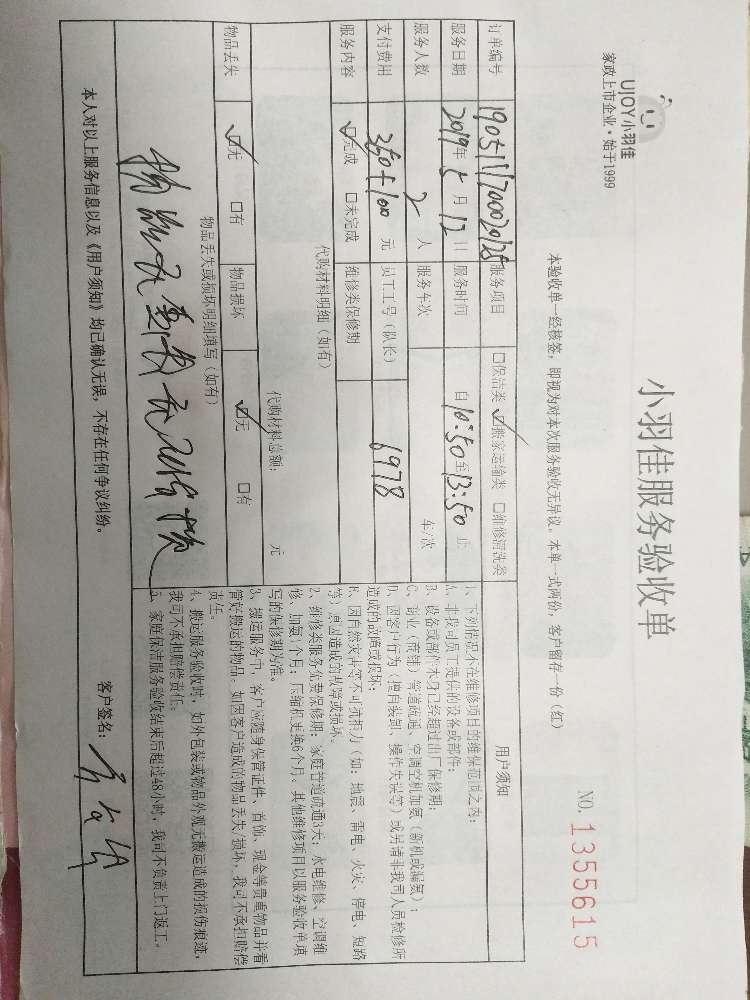 UJOY小羽佳
家政上市企业·始于1999
小羽佳服务验收单
NO. 1355615
本验收单一经核签，即视为对本次服务验收无异议。本单一式两份，客户留存一份（红）
订单编号 190511170002012 服务项目 口保洁类 ☑搬家运输类 口维修清洗类
服务日期 2019年5月12日 服务时间 自10:50至13:50止
服务人数 2人 服务车次 车/次
支付费用 350+100元 员工工号（队长） 6978
服务内容 ☑完成 口未完成 维修类保修期
代购材料明细（如有）
代购材料总额： 元
物品丢失 ☑无 口有 物品损坏 ☑无 口有
物品丢失或损坏明细填写（如有）
物品
用户须知
1、下列情况不在维修项目的维保范围之内：
A、非我司员工提供的设备或部件；
B、设备或部件本身已经超过出厂保修期；
C、商业（商铺）管道疏通、空调空机加氨（新机或漏氨）；
D、因客户行为（擅自装卸、操作失误等）或另请非我司人员检修所
造成的故障或损坏；
E、因自然灾害等不可抗拒力（如：地震、雷电、火灾、停电、短路
等）原因造成的故障或损坏。
2、维修类服务免费保修期：家庭管道疏通3天；水电维修、空调维
修、加氨1个月；压缩机更换6个月。其他维修项目以服务验收单填
写的保修期为准。
3、搬运服务中，客户应随身保管证件、首饰、现金等贵重物品并看
管好搬运的物品。如因客户造成的物品丢失/损坏，我司不承担赔偿
责任。
4、搬运服务验收时，如外包装或物品外观无搬运造成的损伤痕迹，
我司不承担赔偿责任。
5、家庭保洁服务验收结束后超过48小时，我司不负责上门返工。
本人对以上服务信息以及《用户须知》均已确认无误，不存在任何争议纠纷。
客户签名：